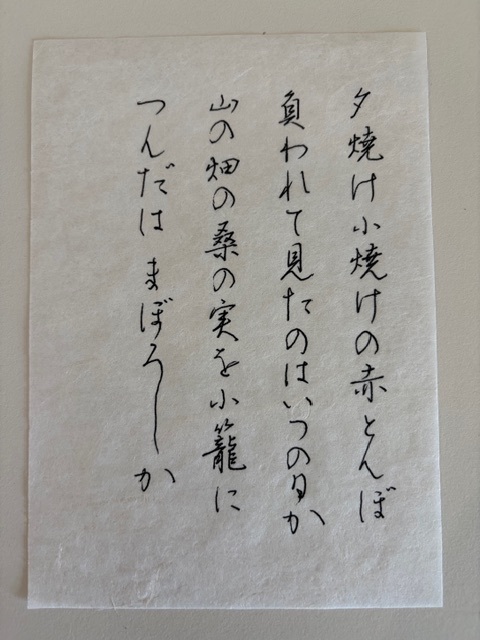 夕焼け小焼けの赤とんぼ
負われて見たのはいつの日か
山の畑の桑の実を小籠に
つんだは まぼろしか